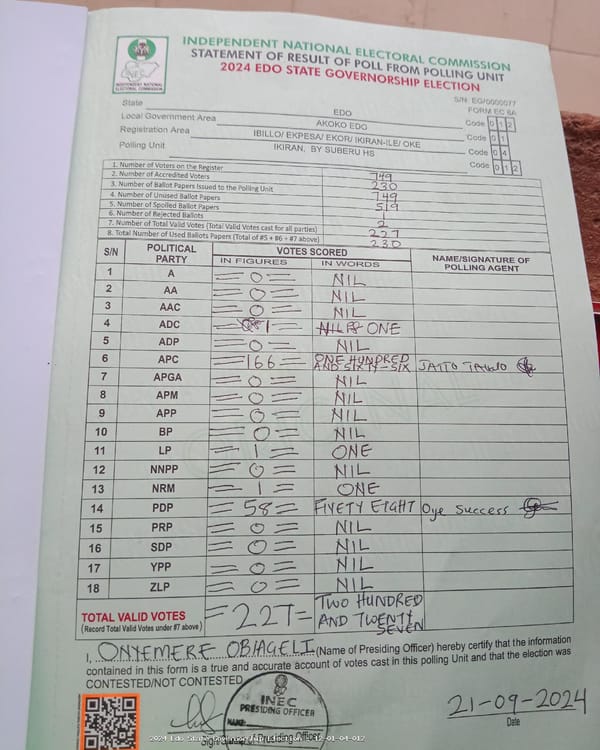 INDEPENDENT NATIONAL ELECTORAL COMMISSION
STATEMENT OF RESULT OF POLL FROM POLLING UNIT
2024 EDO STATE GOVERNORSHIP ELECTION
INEC
INDEPENDENT NATIONAL ELECTORAL COMMISSION
S/N: EG/0000077
FORM EC 8A
State EDO Code 1 2
Local Government Area AKOKO EDO Code 0 1
Registration Area IBILLO/ EKPESA/ EKOR/ IKIRAN-ILE/ OKE Code 0 4
Polling Unit IKIRAN, BY SUBERU HS Code 0 1 2
1. Number of Voters on the Register 749
2. Number of Accredited Voters 230
3. Number of Ballot Papers Issued to the Polling Unit 749
4. Number of Unused Ballot Papers 519
5. Number of Spoiled Ballot Papers 1
6. Number of Rejected Ballots 2
7. Number of Total Valid Votes (Total Valid Votes cast for all parties) 227
8. Total Number of Used Ballots Papers (Total of #5 + #6 + #7 above) 230
S/N POLITICAL PARTY VOTES SCORED NAME/SIGNATURE OF POLLING AGENT
IN FIGURES IN WORDS
1 A = 0 = NIL
2 AA = 0 = NIL
3 AAC = 0 = NIL
4 ADC 1 ONE
5 ADP = 0 = NIL
6 APC = 166 = ONE HUNDRED AND SIXTY-SIX JATTO
7 APGA = 0 = NIL
8 APM = 0 = NIL
9 APP = 0 = NIL
10 BP = 0 = NIL
11 LP = 1 = ONE
12 NNPP = 0 = NIL
13 NRM = 1 = ONE
14 PDP = 58 = FIVETY EIGHT Oye Success
15 PRP = 0 = NIL
16 SDP = 0 = NIL
17 YPP = 0 = NIL
18 ZLP = 0 = NIL
TOTAL VALID VOTES = 227 = TWO HUNDRED AND TWENTY SEVEN
(Record Total Valid Votes under #7 above)
I, ONYEMERE OBIAGELI (Name of Presiding Officer) hereby certify that the information
contained in this form is a true and accurate account of votes cast in this polling Unit and that the election was
CONTESTED/NOT CONTESTED.
INEC
PRESIDING OFFICER
NAME:
21-09-2024
Date